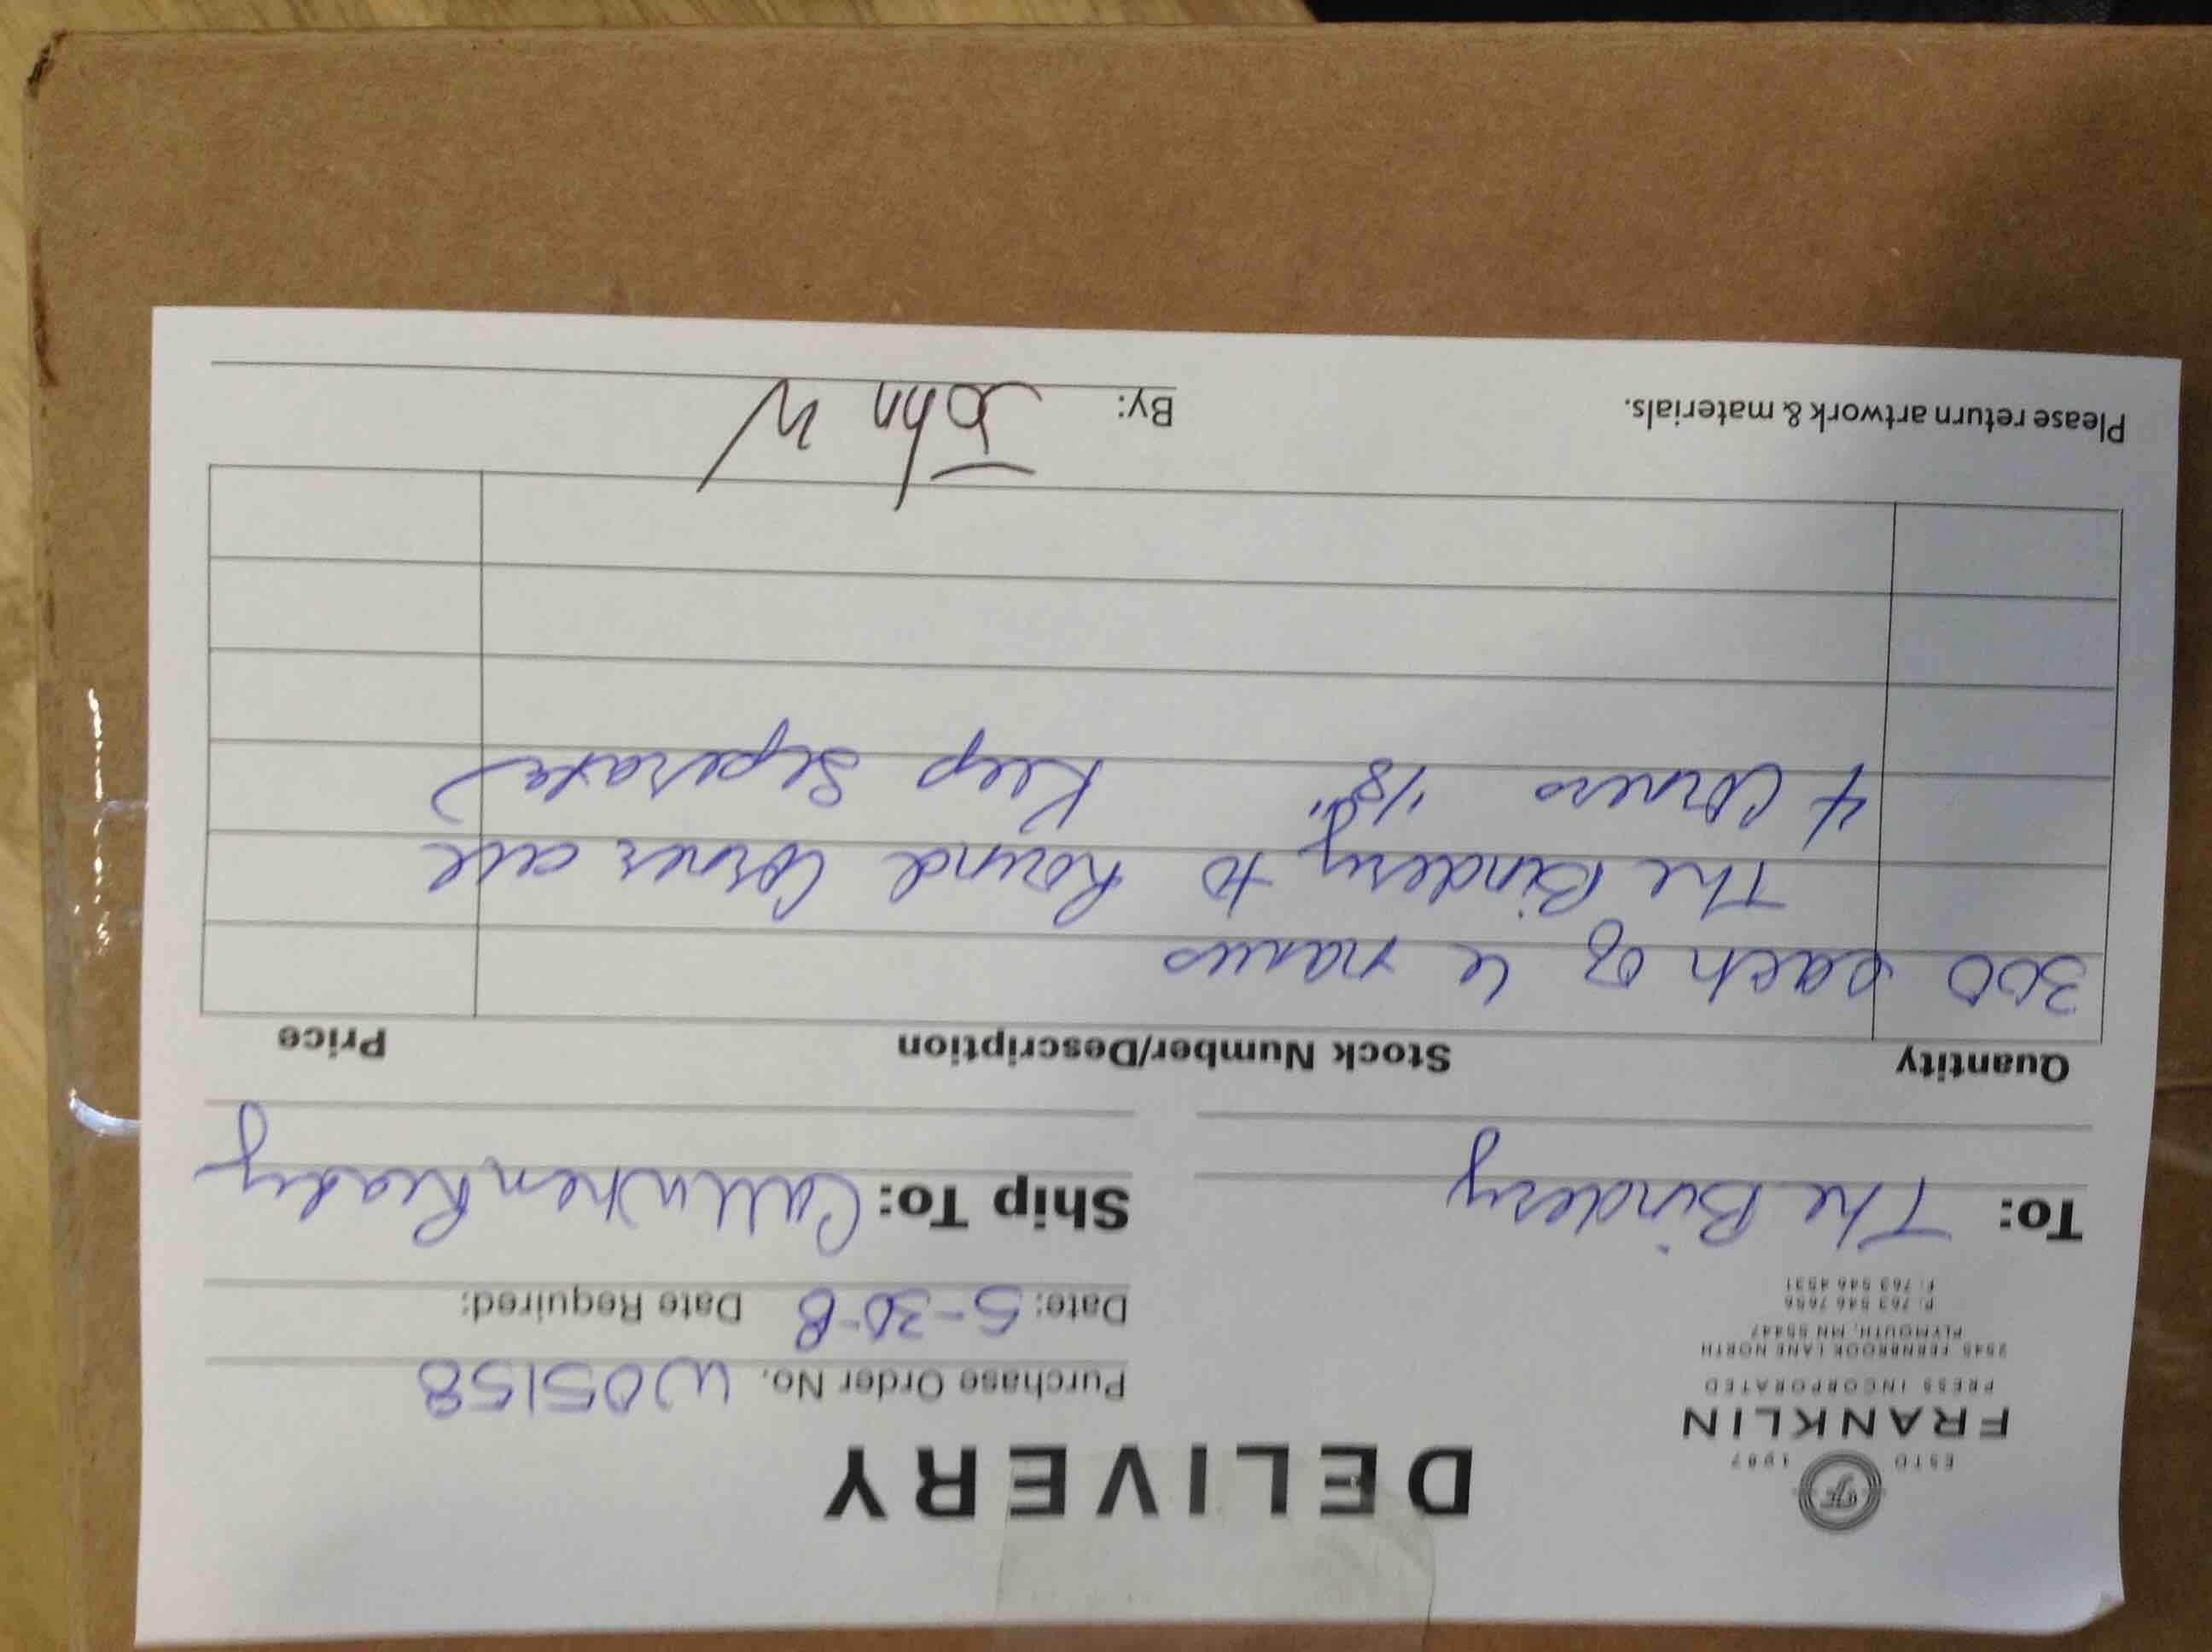 ESTD 1987
FRANKLIN
PRESS INCORPORATED
2545 FERNBROOK LANE NORTH
PLYMOUTH, MN 55447
P: 763 546 7656
F: 763 546 4531
DELIVERY
Purchase Order No. W05158
Date: 5-30-B Date Required:
To: The Bindery
Ship To: Call when Ready
Quantity Stock Number/Description Price
300 each of 4 names
The Bindery to Round Corner all
4 Corners 1/8" Keep Seperate
Please return artwork & materials.
By: John W